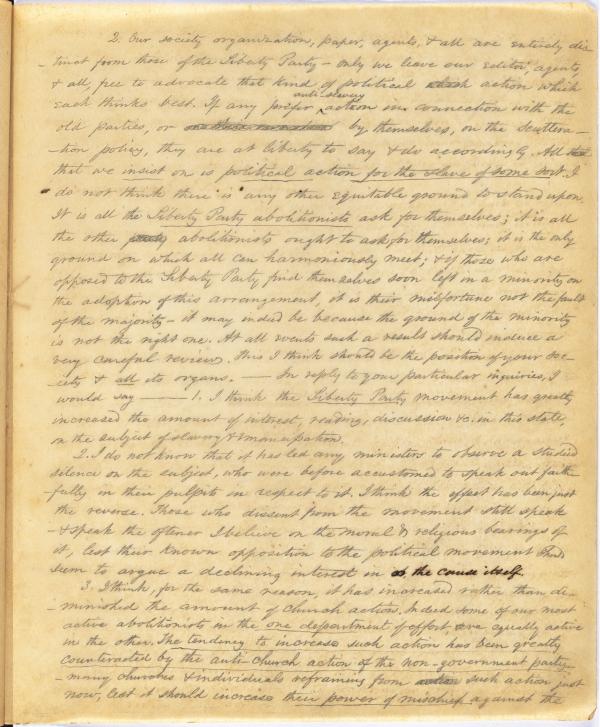 2. Our society organization, paper, agents, & all are entirely dis
-tinct from those of the Liberty Party - only we leave our Editor, agents,
& all, free to advocate that kind of political action which
each thinks best. If any prefer anti slavery action in connection with the
old parties, or by themselves, on the scattera-
-tion policy, they are at liberty to say & do accordingly. All
that we insist on is political action for the slave of some sort. I
do not think there is any other equitable ground to stand upon.
It is all the Liberty Party abolitionists ask for themselves; it is all
the other abolitionists ought to ask for themselves; it is the only
ground on which all can harmoniously meet; & if those who are
opposed to the Liberty Party find themselves soon left in a minority on
the adoption of this arrangement, it is their misfortune not the fault
of the majority - it may indeed be because the ground of the minority
is not the right one. At all events such a result should induce a
very careful review. This I think should be the position of your soc-
-iety & all its organs. —— In reply to your particular inquiries, I
would say —— 1. I think the Liberty Party movement has greatly
increased the amount of interest, reading, discussion &c. in this state,
on the subject of slavery & emancipation.
2. I do not know that it has led any ministers to observe a studied
silence on the subject, who were before accustomed to speak out faith-
fully in their pulpits in respect to it. I think the effect has been just
the reverse. Those who dissent from the movement still speak
- & speak the oftener I believe on the moral & religious bearings of
it, lest their known opposition to the political movement should
seem to argue a declining interest in the cause itself.
3. I think, for the same reason, it has increased rather than di-
-minished the amount of church action. Indeed some of our most
active abolitionists in the one department of effort, are equally active
in the other. The tendency to increase such action has been greatly
counteracted by the anti-church action of the non-government party -
- many churches & individuals refraining from such action just
now, lest it should increase their power of mischief against the